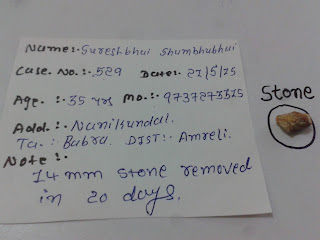 Name:- Sureshbhai Shambhubhai
Case. No.:- 529 Date:- 27/5/15
Age. :- 35 yrs Mo.:- 9737273525
Add.:- Nanikundal.
Ta. : Babra. DIST:. Amreli.
Note :-
14 mm stone removed
in 20 days.
Stone